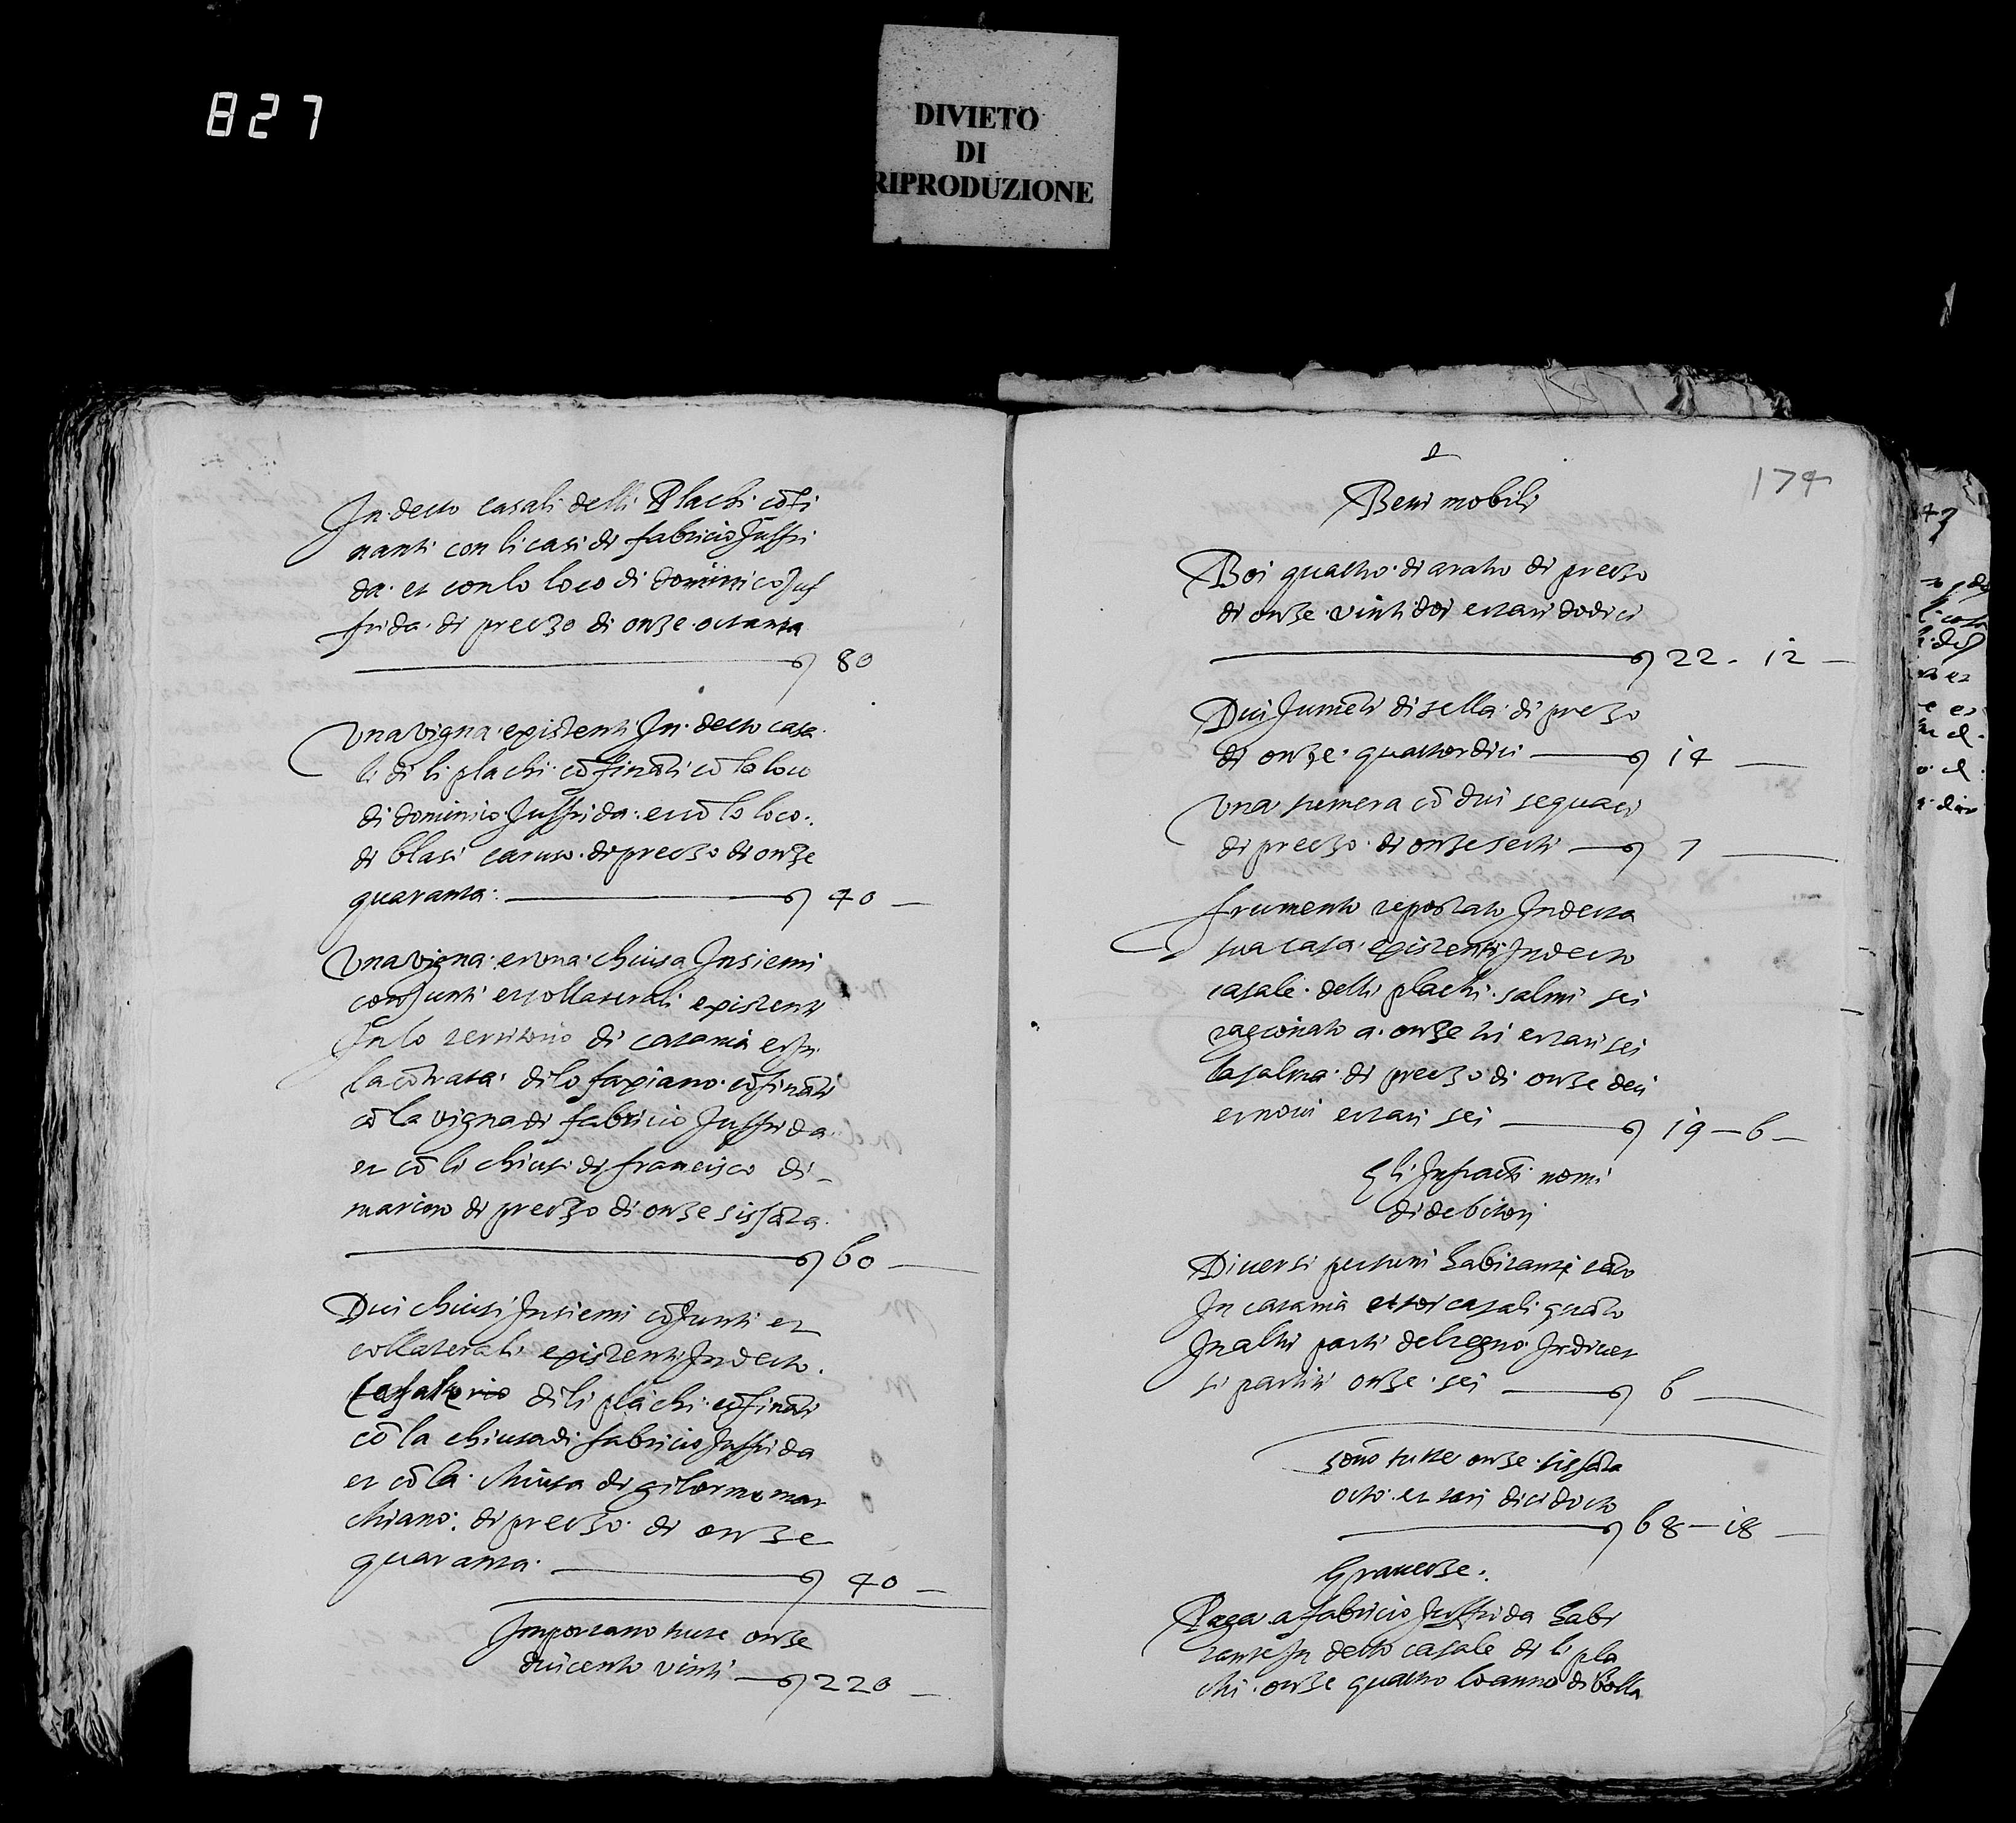 827
DIVIETO
DI
RIPRODUZIONE
In detto casali delli Plachi cõfi
nanti con li casi di fabricio Juffri
da et con lo loco di dominico Juf
frida di prezzo di onze ottanta
80
Una vigna existenti In detto casa
li di li plachi cõfinãti cõ lo loco
di dominico Juffrida et cõ lo loco
di blasi caruso di prezzo di onze
quaranta 40
Una vigna et una chiusa Insiemi
conjunti et collaterali existenti
In lo territorio di catania et In
la cõtrata di lo faxiano cõfinãti
cõ la vigna di fabricio Juffrida
et cõ li chiusi di francisco di
marino di prezzo di onze sissãta
60
Dui chiusi Insiemi cõjunti et
collaterali existenti In detto
di li plachi cõfinãti
cõ la chiusa di fabricio Juffrida
et cõ la chiusa di gilormo mar
chiano di prezzo di onze
quaranta 40
Importano tutte onze
duicento vinti 220
174
Beni mobili
Boi quattro di aratro di prezzo
di onze vinti doi et tarì dodici
22 - 12
Dui Jumẽti di sella di prezzo
di onze quattordici 14
Una sumera cõ dui sequaci
di prezzo di onze setti 7
frumento repostato In detta
sua casa existenti In detto
casale delli plachi salmi sei
ragionato a onze tri et tarì sei
la salma di prezzo di onze deci
et novi et tarì sei 19 - 6
Gli Infrãtti nomi
di debitori
Diversi persuni habitanti tãto
In catania et soi casali quãto
In altri parti del regno In diver
si partiti onze sei 6
sono tutte onze sissãta
otto et tarì dicidotto
68 - 18
Gravezze
Paga a fabricio Juffrida habi
tante In detto casale di li pla
chi onze quattro lo anno di bolla